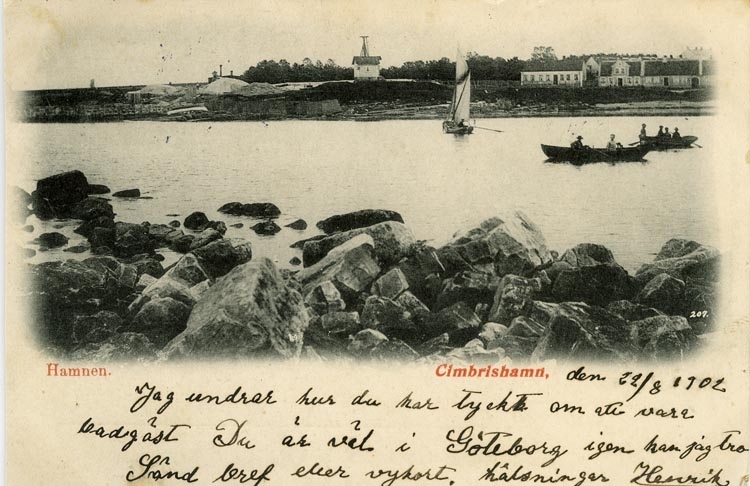 209.
Hamnen. Cimbrishamn, den 22/8 1902
Jag undrar hur du har tyckt om att vara
badgäst Du är väl i Göteborg igen kan jag tro
Sänd bref eller vykort. hälsningar Henrik